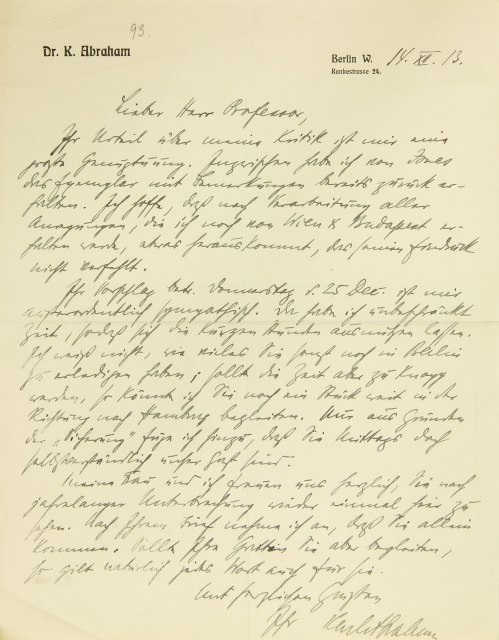 93.
Dr. K. Abraham
Berlin W. 14. XII. 13.
Rankestrasse 24.
Lieber Herr Professor,
Ihr Urteil über meine Kritik ist mir eine
große Genugtuung. Inzwischen habe ich von Jones
das Exemplar mit Bemerkungen bereits zurück er-
halten. Ich hoffe, daß nach Verarbeitung aller
Anregungen, die ich noch von Wien & Budapest er-
halten werde, etwas herauskommt, das seinen Eindruck
nicht verfehlt.
Ihr Vorschlag betr. Donnerstag d. 25 Dec. ist mir
außerordentlich sympathisch. Da habe ich unbeschränkte
Zeit, sodaß sich die kurzen Stunden ausnützen lassen.
Ich weiß nicht, wie vieles Sie sonst noch in Berlin
zu erledigen haben; sollte die Zeit aber zu knapp
werden, so könnte ich Sie noch ein Stück weit in der
Richtung nach Hamburg begleiten. Nur aus Gründen
der „Sicherung" füge ich hinzu, daß Sie Mittags doch
selbstverständlich unser Gast sind.
Meine Frau und ich freuen uns herzlich, Sie nach
jahrelanger Unterbrechung wieder einmal hier zu
sehen. Nach Ihrem Brief nehme ich an, daß Sie allein
kommen. Sollte Ihre Gattin Sie aber begleiten,
so gilt natürlich jedes Wort auch für sie.
Mit herzlichen Grüßen
Ihr Karl Abraham